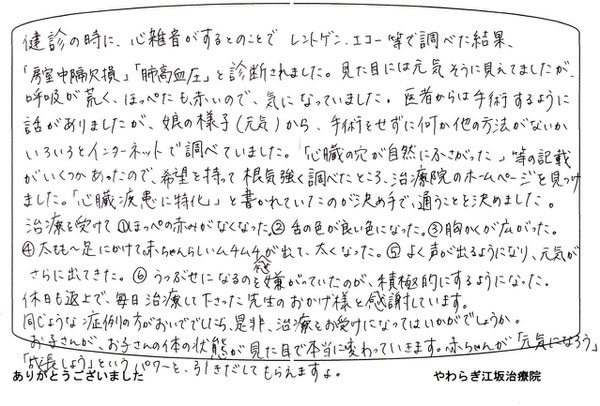 健診の時に、心雑音がするとのことで レントゲン、エコー等で調べた結果、
「房室中隔欠損」「肺高血圧」と診断されました。見た目には元気そうに見えてましたが、
呼吸が荒く、ほっぺたも赤いので、気になっていました。医者からは手術するように
話がありましたが、娘の様子(元気)から、手術をせずに何か他の方法がないか
いろいろとインターネットで調べていました。「心臓の穴が自然にふさがった」等の記載
がいくつかあったので、希望を持って根気強く調べたところ、治療院のホームページを見つけ
ました。「心臓疾患に特化」と書かれていたのが決め手で、通うことを決めました。
治療を受けて ①ほっぺの赤みがなくなった。② 舌の色が良い色になった。③ 胸かくが広がった。
④ 太もも〜足にかけて赤ちゃんらしいムチムチ感が出て、太くなった。⑤ よく声が出るようになり、元気が
さらに出てきた。⑥ うつぶせになるのを嫌がっていたのが、積極的にするようになった。
休日も返上で、毎日治療して下さった先生のおかげ様と感謝しています。
同じような症例の方がおいででしたら、是非、治療をお受けになってはいかがでしょうか。
お子さんが、お子さんの体の状態が見た目で本当に変わっていきます。赤ちゃんが「元気になろう」
「成長しよう」というパワーを、引きだしてもらえますよ。
ありがとうございました
やわらぎ江坂治療院